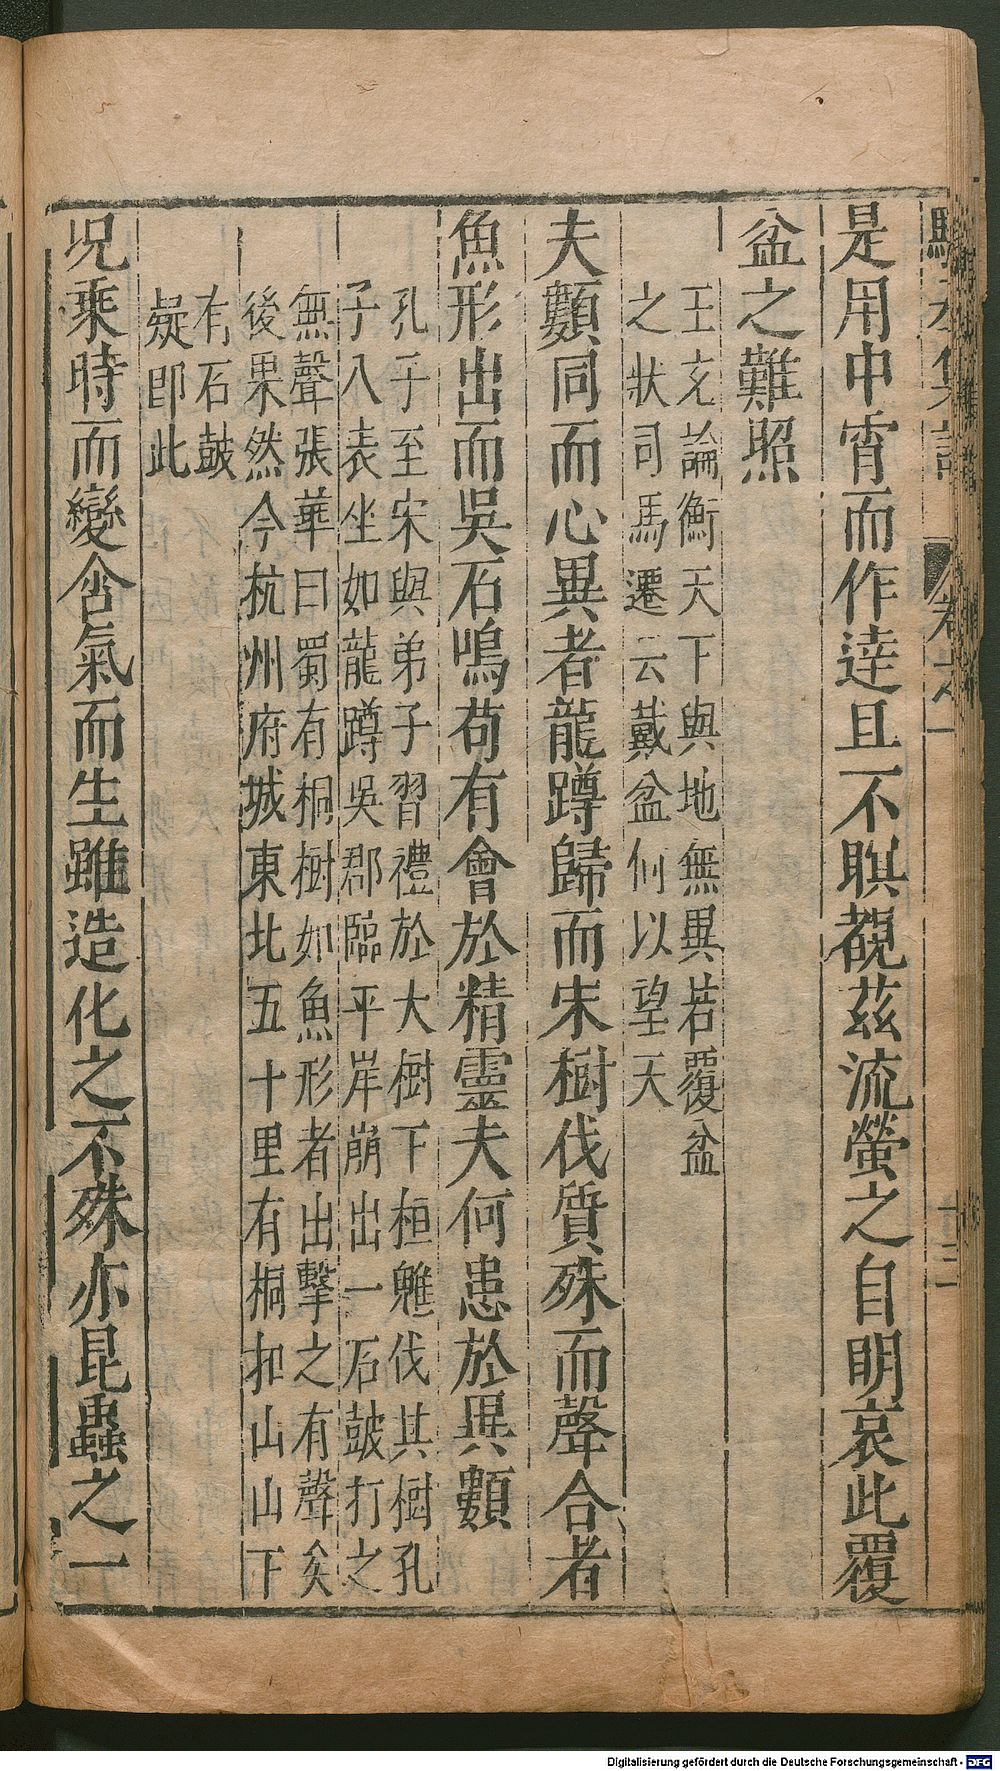 是用中宵而作達且不瞑覩茲流螢之自明哀此覆
盆之難照
王充論衡天下與地無異若覆盆
之狀司馬遷云戴盆何以望天
夫類同而心異者龍蹲歸而宋樹伐質殊而聲合者
魚形出而吳石鳴苟有會於精靈夫何患於異類
孔子至宋與弟子習禮於大樹下桓魋伐其樹孔
子八表坐如龍蹲吳郡臨平岸崩出一石皷打之
無聲張華曰蜀有桐樹如魚形者出擊之有聲矣
後果然今杭州府城東北五十里有桐扣山山下
有石皷
疑即此
況乘時而變含氣而生雖造化之不殊亦昆蟲之一
卷六
十三
Digitalisierung gefördert durch die Deutsche Forschungsgemeinschaft - DFG